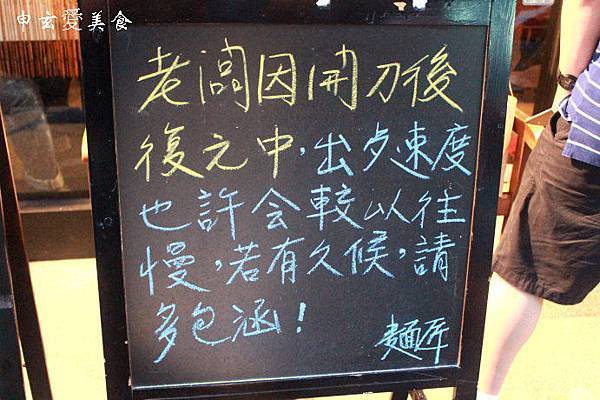 申玄愛美食
老闆因開刀後
復元中,出夕速度
也許会較以往
慢,若有久候,請
多包涵!
麵匠